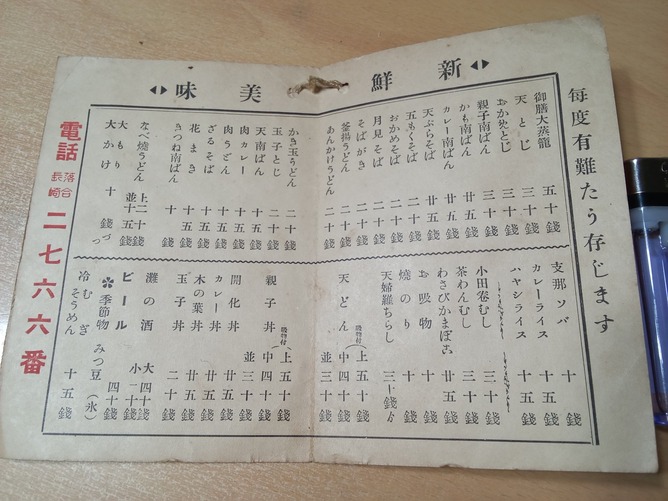 新鮮
美味
毎度有難たう存じます
御膳大蒸籠 五十銭
天とじ 三十銭
おかめとじ 三十銭
親子南ばん 三十銭
かも南ばん 三十銭
カレー南ばん 廿五銭
天ぷらそば 廿五銭
五もくそば 廿五銭
おかめそば 二十銭
月見そば 二十銭
そばがき 二十銭
釜揚うどん 二十銭
あんかけうどん 二十銭
かき玉うどん 二十銭
玉子とじ 二十銭
天南ばん 十五銭
肉カレー 十五銭
肉うどん 十五銭
ざるそば 十五銭
花まき 十五銭
きつね南ばん 十銭
なべ焼うどん 上二十銭 並十五銭
大もり
大かけ 十銭づつ
支那ソバ 十銭
カレーライス 十五銭
ハヤシライス 十五銭
小田巻むし 三十銭
茶わんむし 三十銭
わさびかまぼこ 廿五銭
お吸物 十銭
焼のり 十銭
天婦羅ちらし 三十銭
天どん 吸物付 上五十銭 中四十銭 並三十銭
親子丼 吸物付 上五十銭 中四十銭 並三十銭
開化丼 廿五銭
カレー丼 廿五銭
木の葉丼 廿五銭
玉子丼 二十銭
灘の酒 大四十銭 小二十銭
ビール 四十銭
季節物 みつ豆(氷)
冷むぎ
そうめん 十五銭
電話 落合長崎 二七六六番